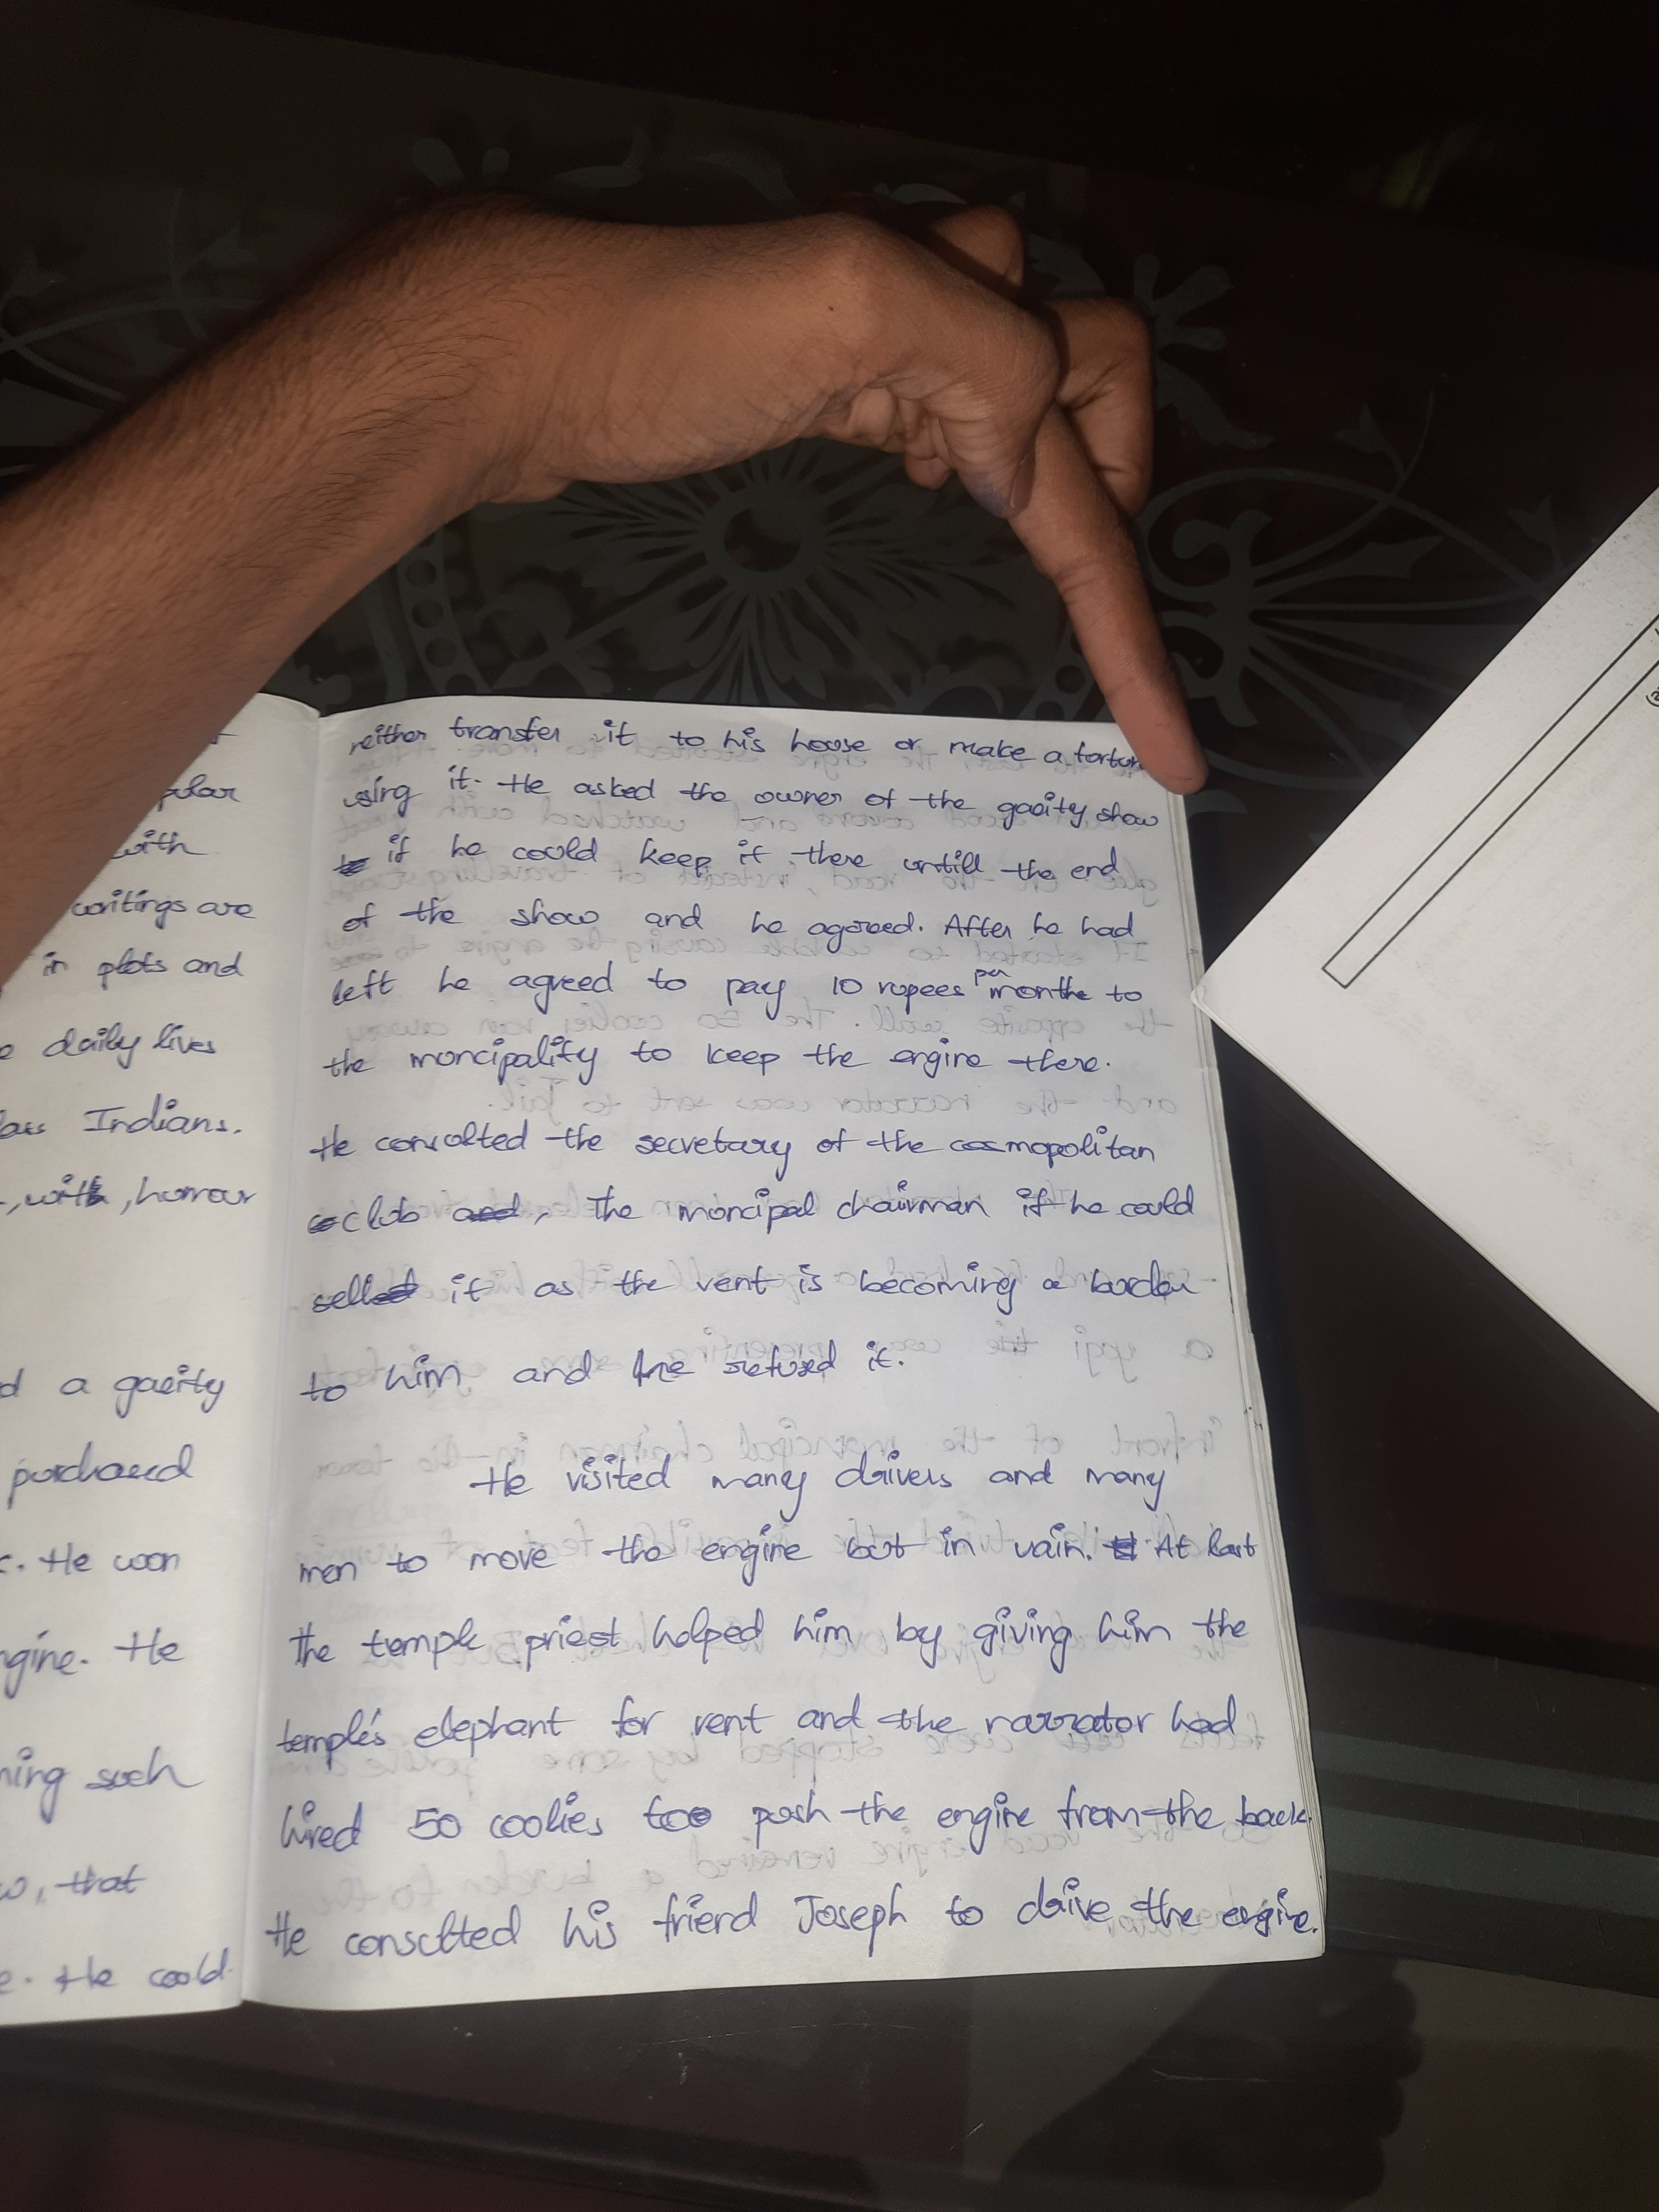 pular
with
writings are
in plots and
daily lives
Indians.
, with, humour
a gaeity
purchased
. He won
ngine. He
such
, that
. He could
neither transfer it to his house or make a fortun
using it. He asked the owner of the gaeity show
if he could keep it there untill the end
of the show and he agreed. After he had
left he agreed to pay 10 rupees per month to
the muncipality to keep the engine there.
He consulted the secretary of the cosmopolitan
club, The muncipal chairman if he could
sell it as the rent is becoming a burden
to him and he refused it.
He visited many drivers and many
men to move the engine but in vain. At last
The temple priest helped him by giving him the
temple's elephant for rent and the narrator had
hired 50 coolies to push the engine from the back.
He consulted his friend Joseph to drive the engine.